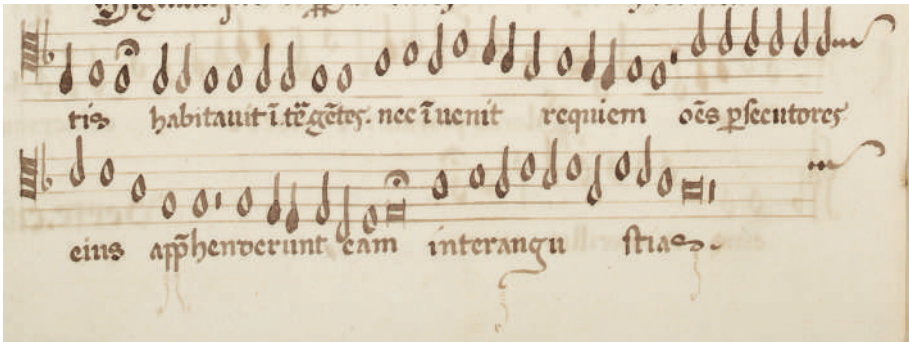 tis habitauit ī.tē gētes. nec ī uenit requiem oēs psecutores
eius app̄henderunt eam interangu stias.